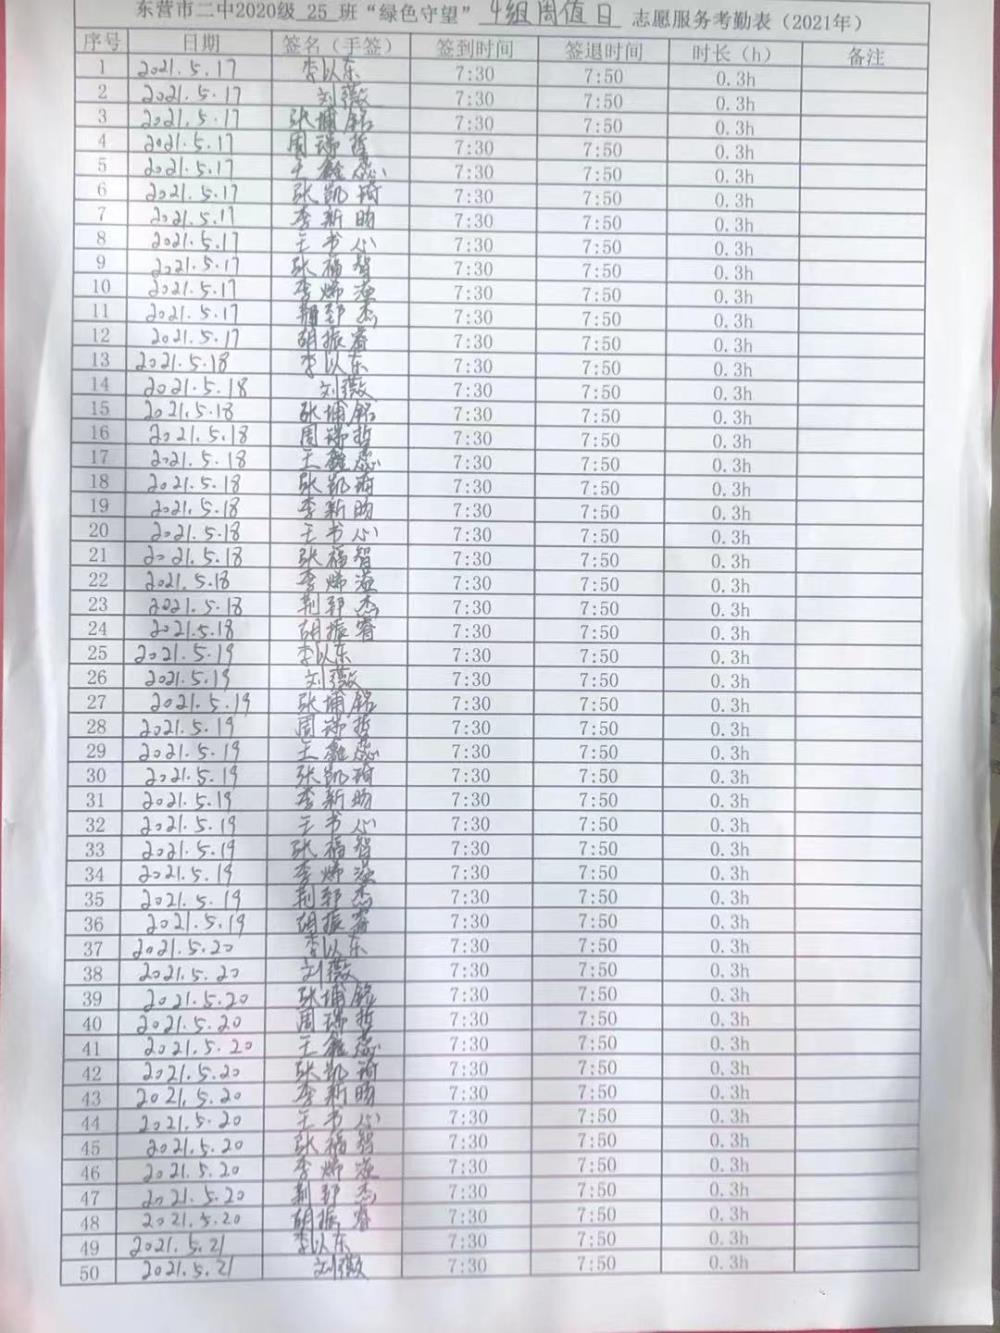 东营市二中2020级 25 班“绿色守望” 4组周值日 志愿服务考勤表（2021年）
序号 日期 签名（手签） 签到时间 签退时间 时长（h） 备注
1 2021.5.17 李以东 7:30 7:50 0.3h
2 2021.5.17 刘薇 7:30 7:50 0.3h
3 2021.5.17 张埔铭 7:30 7:50 0.3h
4 2021.5.17 周瑞哲 7:30 7:50 0.3h
5 2021.5.17 王鑫蕊 7:30 7:50 0.3h
6 2021.5.17 张凯琦 7:30 7:50 0.3h
7 2021.5.17 李新昀 7:30 7:50 0.3h
8 2021.5.17 王书心 7:30 7:50 0.3h
9 2021.5.17 张福智 7:30 7:50 0.3h
10 2021.5.17 李 7:30 7:50 0.3h
11 2021.5.17 荆郅杰 7:30 7:50 0.3h
12 2021.5.17 胡振睿 7:30 7:50 0.3h
13 2021.5.18 李以东 7:30 7:50 0.3h
14 2021.5.18 刘薇 7:30 7:50 0.3h
15 2021.5.18 张埔铭 7:30 7:50 0.3h
16 2021.5.18 周瑞哲 7:30 7:50 0.3h
17 2021.5.18 王鑫蕊 7:30 7:50 0.3h
18 2021.5.18 张凯琦 7:30 7:50 0.3h
19 2021.5.18 李新昀 7:30 7:50 0.3h
20 2021.5.18 王书心 7:30 7:50 0.3h
21 2021.5.18 张福智 7:30 7:50 0.3h
22 2021.5.18 李 7:30 7:50 0.3h
23 2021.5.18 荆郅杰 7:30 7:50 0.3h
24 2021.5.18 胡振睿 7:30 7:50 0.3h
25 2021.5.19 李以东 7:30 7:50 0.3h
26 2021.5.19 刘薇 7:30 7:50 0.3h
27 2021.5.19 张埔铭 7:30 7:50 0.3h
28 2021.5.19 周瑞哲 7:30 7:50 0.3h
29 2021.5.19 王鑫蕊 7:30 7:50 0.3h
30 2021.5.19 张凯琦 7:30 7:50 0.3h
31 2021.5.19 李新昀 7:30 7:50 0.3h
32 2021.5.19 王书心 7:30 7:50 0.3h
33 2021.5.19 张福智 7:30 7:50 0.3h
34 2021.5.19 李 7:30 7:50 0.3h
35 2021.5.19 荆郅杰 7:30 7:50 0.3h
36 2021.5.19 胡振睿 7:30 7:50 0.3h
37 2021.5.20 李以东 7:30 7:50 0.3h
38 2021.5.20 刘薇 7:30 7:50 0.3h
39 2021.5.20 张埔铭 7:30 7:50 0.3h
40 2021.5.20 周瑞哲 7:30 7:50 0.3h
41 2021.5.20 王鑫蕊 7:30 7:50 0.3h
42 2021.5.20 张凯琦 7:30 7:50 0.3h
43 2021.5.20 李新昀 7:30 7:50 0.3h
44 2021.5.20 王书心 7:30 7:50 0.3h
45 2021.5.20 张福智 7:30 7:50 0.3h
46 2021.5.20 李 7:30 7:50 0.3h
47 2021.5.20 荆郅杰 7:30 7:50 0.3h
48 2021.5.20 胡振睿 7:30 7:50 0.3h
49 2021.5.21 李以东 7:30 7:50 0.3h
50 2021.5.21 刘薇 7:30 7:50 0.3h